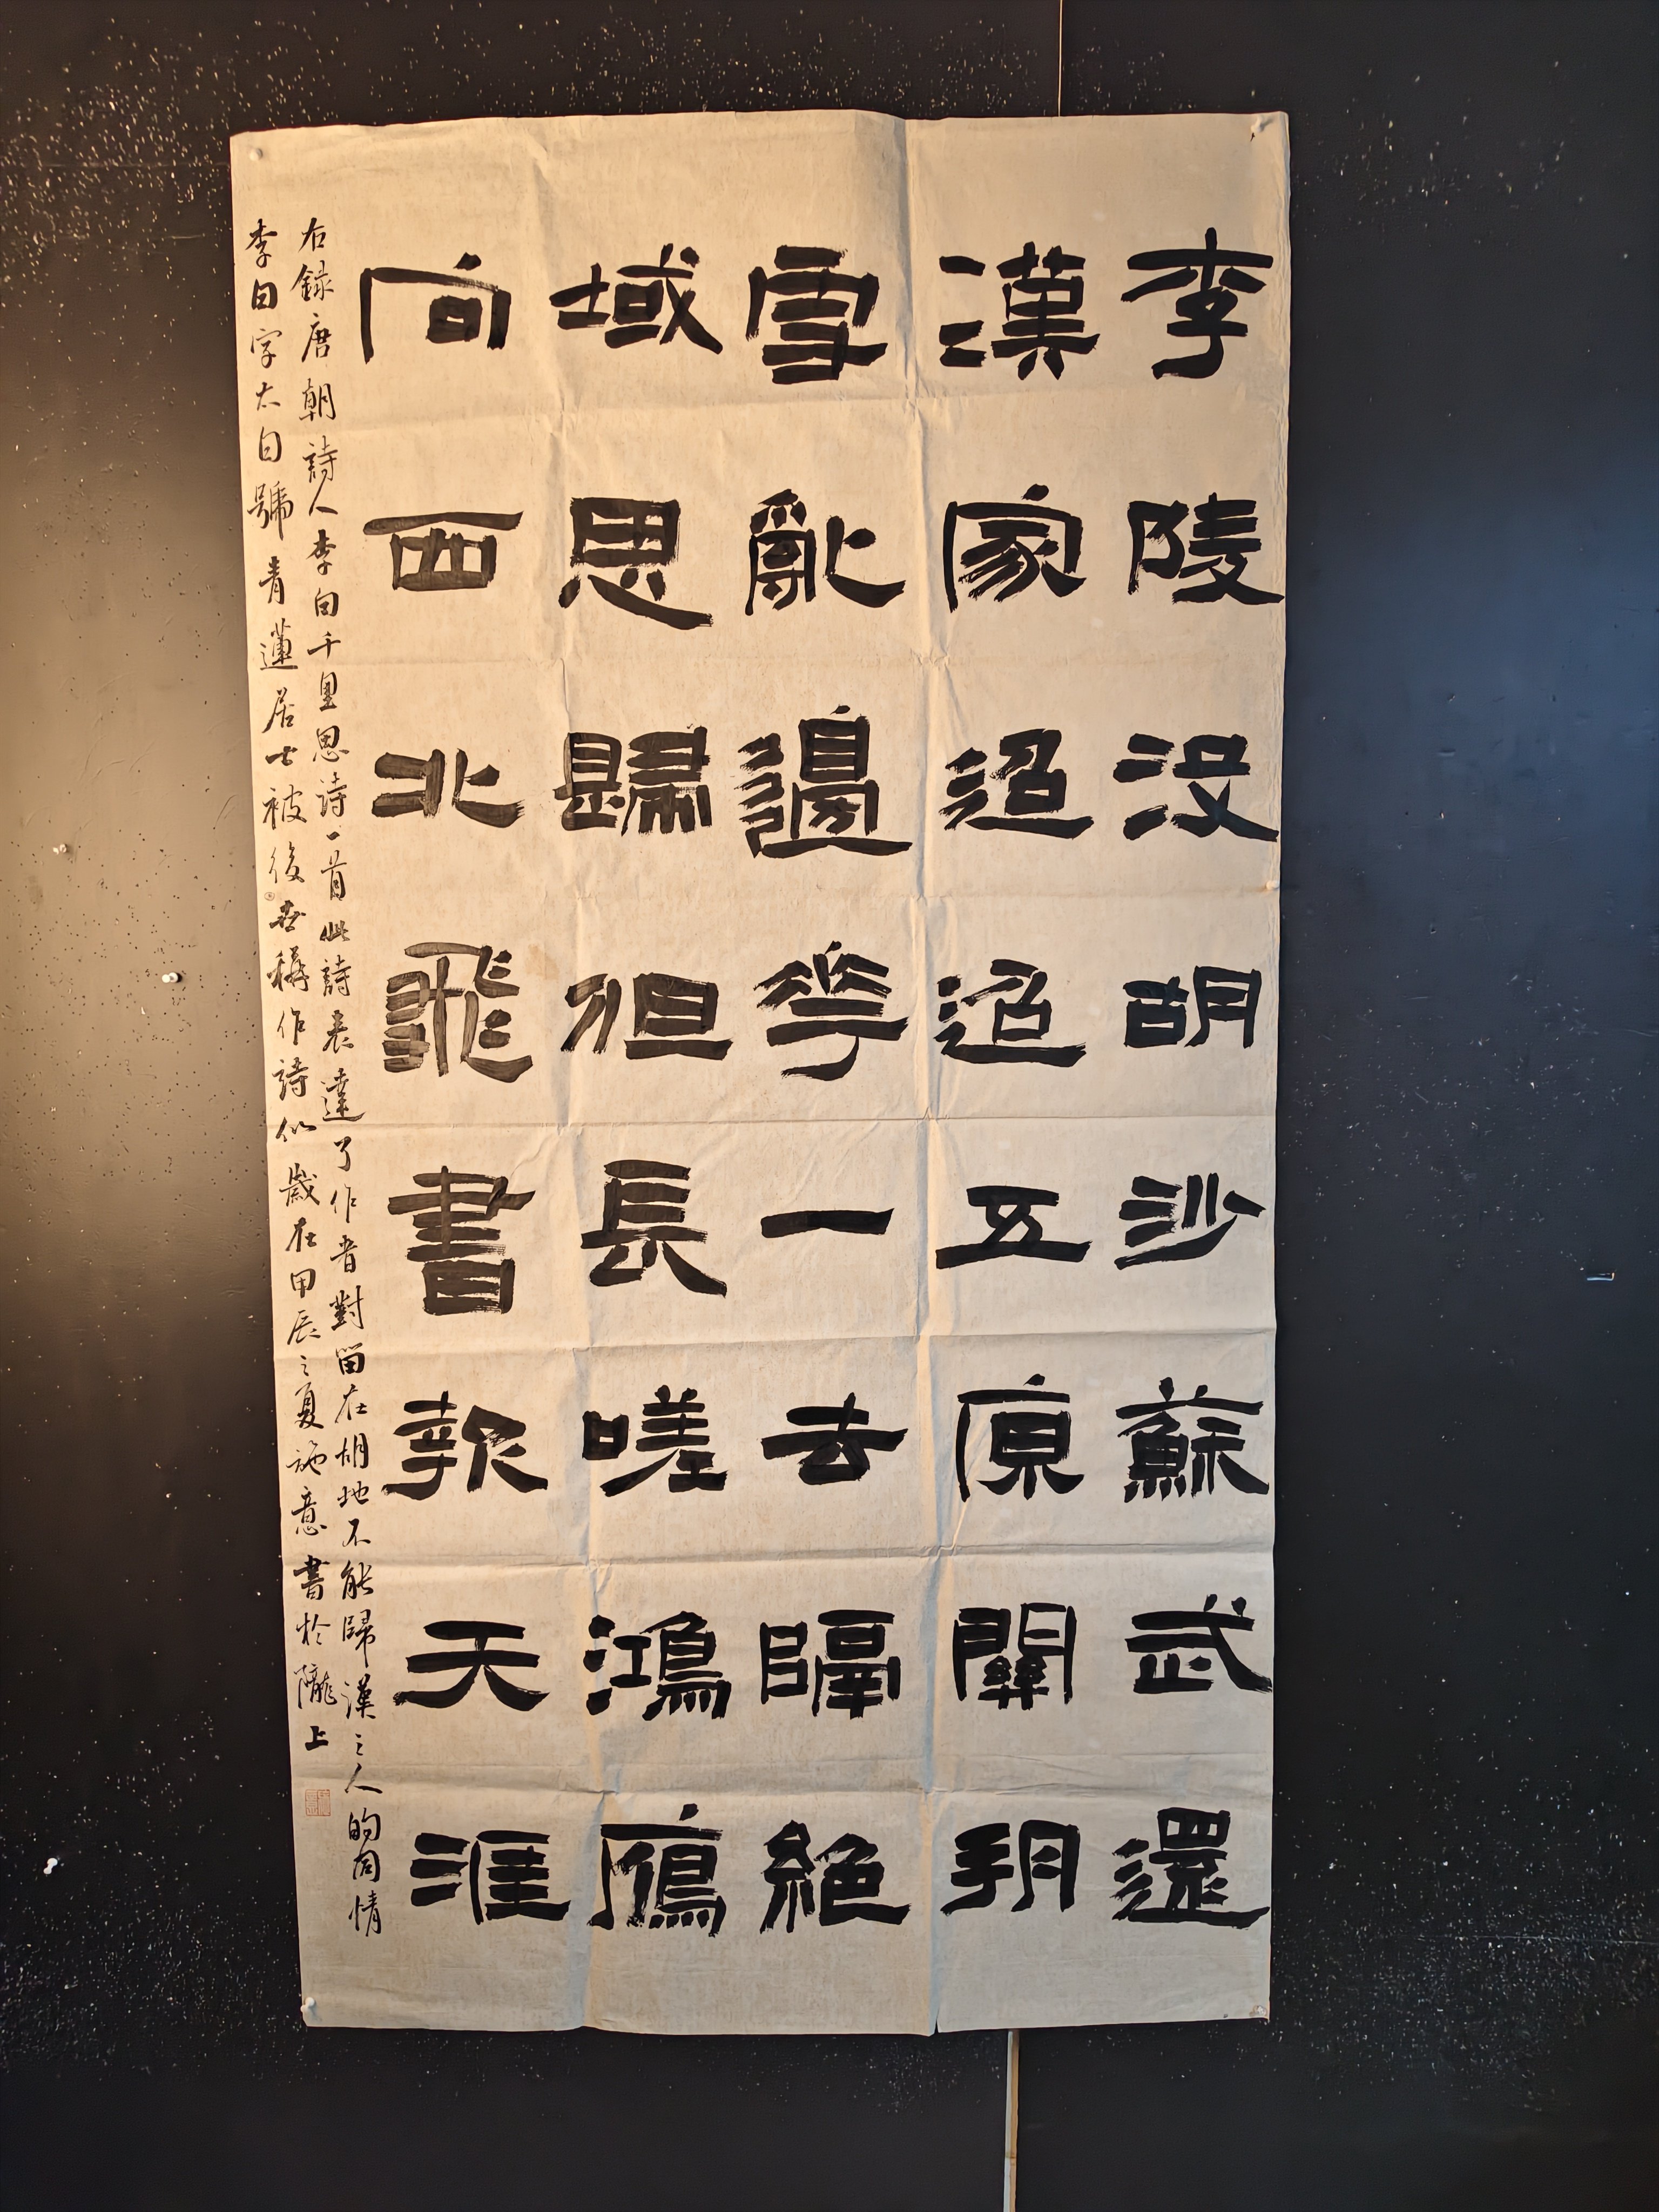 李陵没胡沙蘇武還
漢家迢迢五原關朔
雪亂邊華一去隔絕
域思歸但長嗟鴻鴈
向西北飛書報天涯
右錄唐朝詩人李白千里思詩一首此詩表達了作者對留在胡地不能歸漢之人的同情
李白字太白號青蓮居士被後世稱作詩仙歲在甲辰之夏施意書於隴上